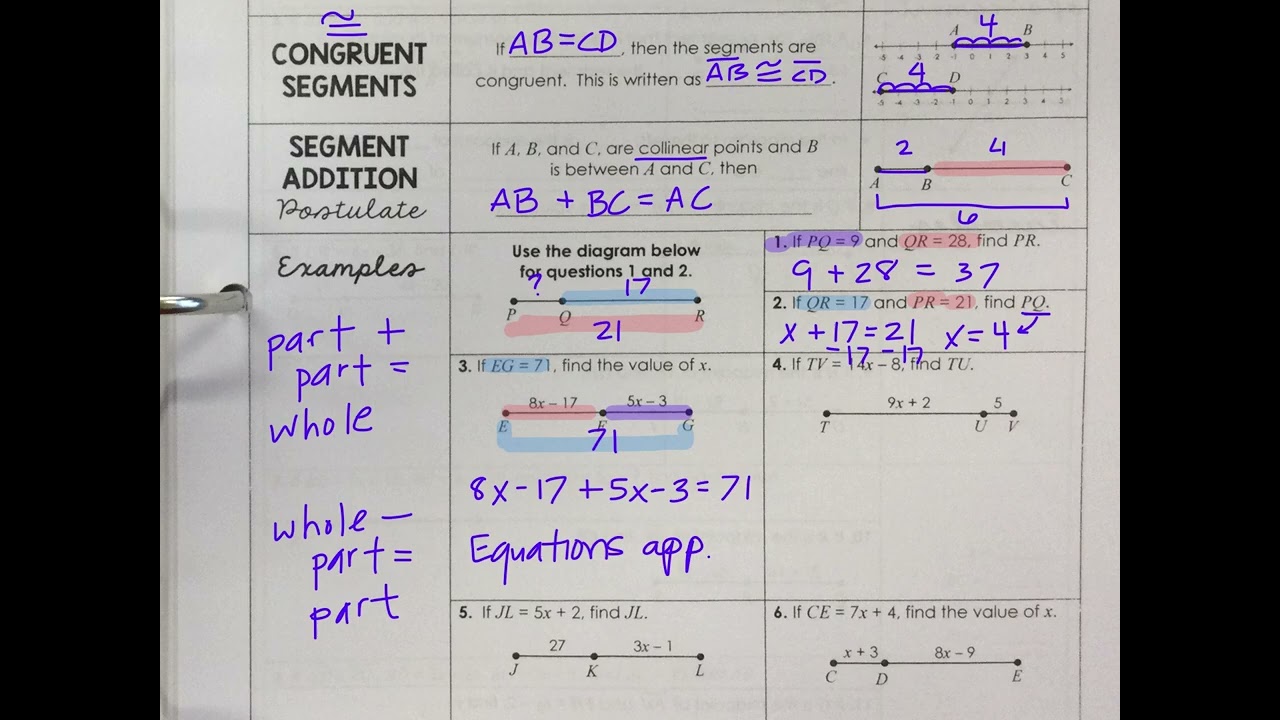 ≅
CONGRUENT
SEGMENTS
If AB=CD, then the segments are
congruent. This is written as AB ≅ CD.
4
A B
-5 -4 -3 -2 -1 0 1 2 3 4 5
4
C D
-5 -4 -3 -2 -1 0 1 2 3 4 5
SEGMENT
ADDITION
Postulate
If A, B, and C, are collinear points and B
is between A and C, then
AB + BC = AC
2 4
A B C
6
Examples
part +
part =
whole
whole –
part =
part
Use the diagram below
for questions 1 and 2.
? 17
P Q R
21
1. If PQ = 9 and QR = 28, find PR.
9 + 28 = 37
2. If QR = 17 and PR = 21, find PQ.
x + 17 = 21 x = 4
-17 -17
3. If EG = 71, find the value of x.
8x – 17 5x – 3
E F G
71
8x – 17 + 5x – 3 = 71
Equations app.
4. If TV = 14x – 8, find TU.
9x + 2 5
T U V
5. If JL = 5x + 2, find JL.
27 3x – 1
J K L
6. If CE = 7x + 4, find the value of x.
x + 3 8x – 9
C D E